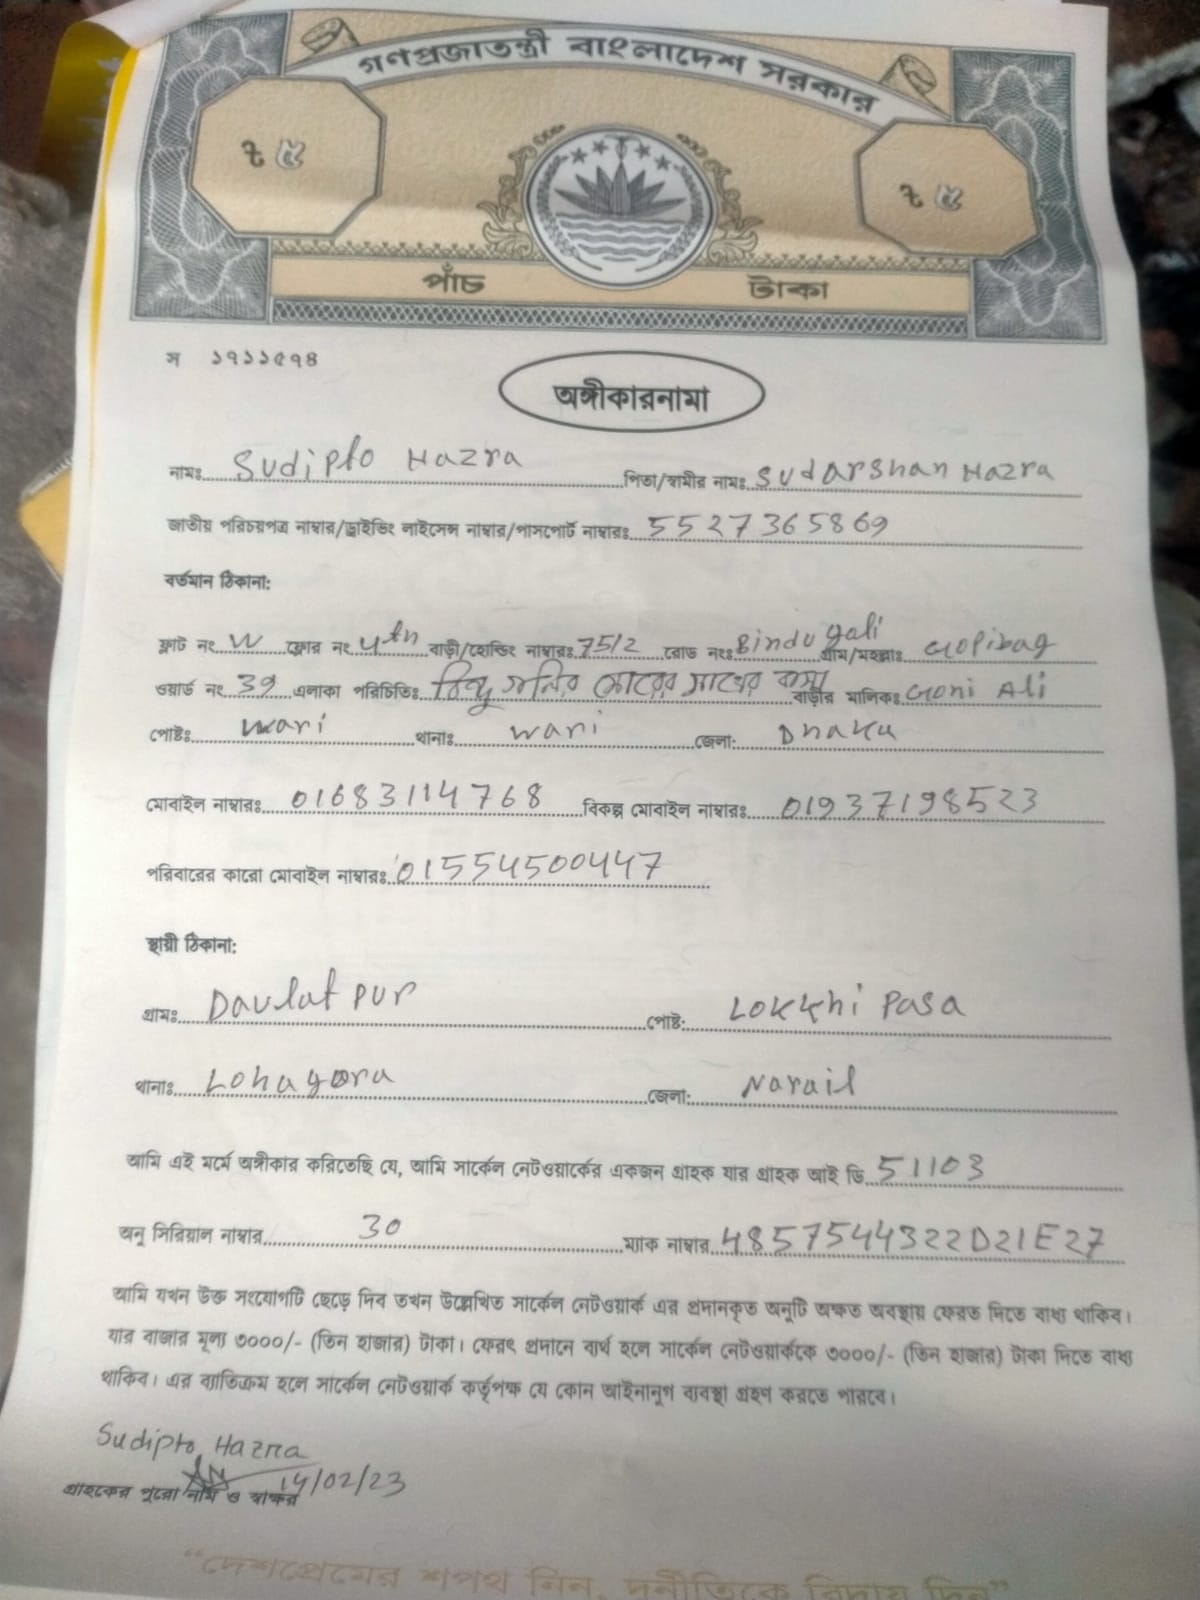 গণপ্রজাতন্ত্রী বাংলাদেশ সরকার
৳ ৫ ৳ ৫
পাঁচ টাকা
স ১৭১১৫৭৪
অঙ্গীকারনামা
নামঃ Sudipto Hazra পিতা/স্বামীর নামঃ Sudarshan Hazra
জাতীয় পরিচয়পত্র নাম্বার/ড্রাইভিং লাইসেন্স নাম্বার/পাসপোর্ট নাম্বারঃ 5527365869
বর্তমান ঠিকানা:
ফ্লাট নং W ফ্লোর নং 4th বাড়ী/হোল্ডিং নাম্বারঃ 75/2 রোড নংঃ Bindu gali গ্রাম/মহল্লাঃ Gopibag
ওয়ার্ড নং 39 এলাকা পরিচিতিঃ বিন্দু গলির মোরের মাথের বাসা বাড়ীর মালিকঃ Goni Ali
পোষ্টঃ wari থানাঃ wari জেলা: Dhaka
মোবাইল নাম্বারঃ 01683114768 বিকল্প মোবাইল নাম্বারঃ 01937198523
পরিবারের কারো মোবাইল নাম্বারঃ 01554500447
স্থায়ী ঠিকানা:
গ্রামঃ Daulatpur পোষ্ট: Lokkhi Pasa
থানাঃ Lohagora জেলা: Narail
আমি এই মর্মে অঙ্গীকার করিতেছি যে, আমি সার্কেল নেটওয়ার্কের একজন গ্রাহক যার গ্রাহক আই ডি 51103
অনু সিরিয়াল নাম্বার 30 ম্যাক নাম্বার 4857544322D21E27
আমি যখন উক্ত সংযোগটি ছেড়ে দিব তখন উল্লেখিত সার্কেল নেটওয়ার্ক এর প্রদানকৃত অনুটি অক্ষত অবস্থায় ফেরত দিতে বাধ্য থাকিব।
যার বাজার মূল্য ৩০০০/- (তিন হাজার) টাকা। ফেরৎ প্রদানে ব্যর্থ হলে সার্কেল নেটওয়ার্ককে ৩০০০/- (তিন হাজার) টাকা দিতে বাধ্য
থাকিব। এর ব্যতিক্রম হলে সার্কেল নেটওয়ার্ক কর্তৃপক্ষ যে কোন আইনানুগ ব্যবস্থা গ্রহণ করতে পারবে।
Sudipto Hazra
14/02/23
গ্রাহকের পুরো নাম ও স্বাক্ষর
“দেশপ্রেমের শপথ নিন, দুর্নীতিকে বিদায় দিন”